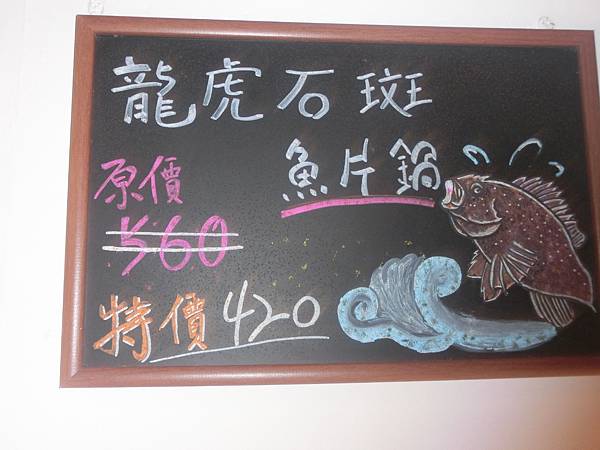 龍虎石斑
魚片鍋
原價
560
特價420